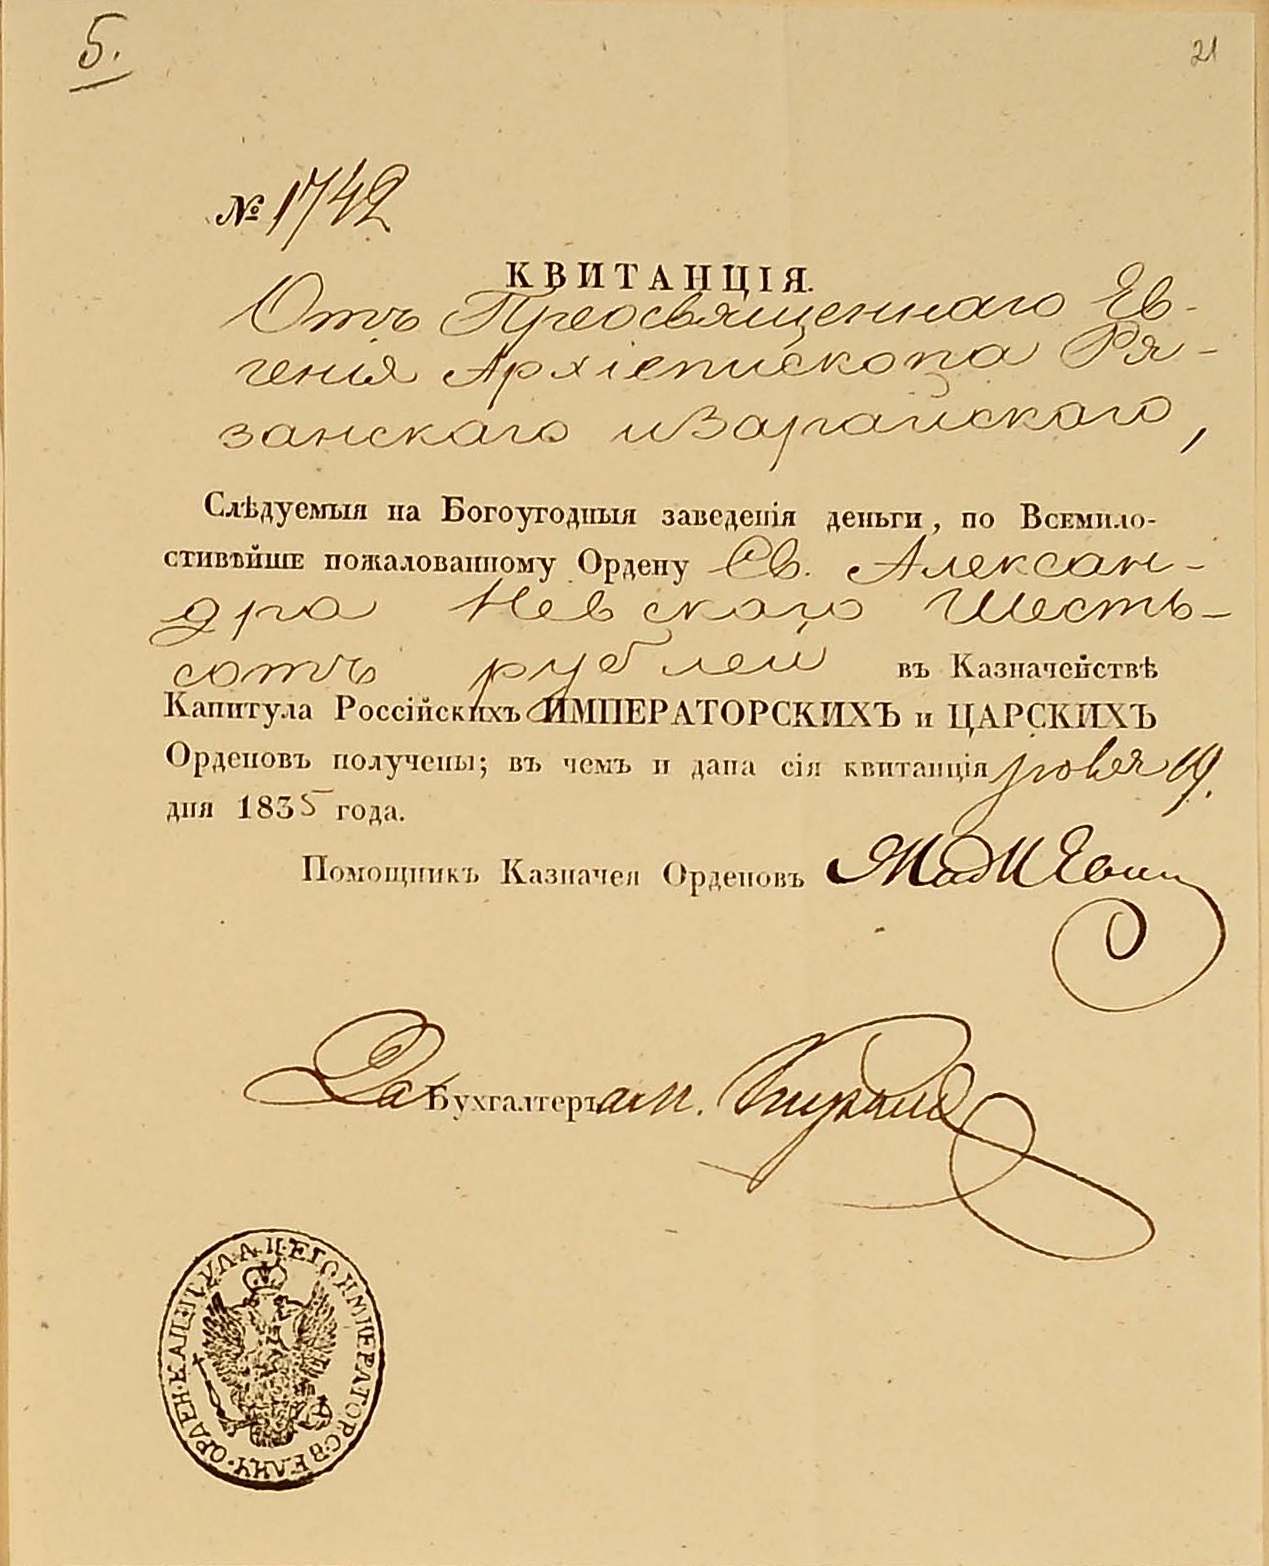 5.
21
№ 1742
КВИТАНЦІЯ.
Отъ Преосвященнаго Ев-
генія Архіепископа Ря-
занскаго и Зарайскаго,
Слѣдуемыя на Богоугодныя заведенія деньги, по Всемило-
стивѣйше пожалованному Ордену Св. Алексан-
дра Невскаго Шесть-
сотъ рублей въ Казначействѣ
Капитула Россійскихъ ИМПЕРАТОРСКИХЪ и ЦАРСКИХЪ
Орденовъ получены; въ чемъ и дана сія квитанція 19.
дня 1835 года.
Помощникъ Казначея Орденовъ
За Бухгалтера
КАПИТУЛА Е ИМПЕРАТОРС ВЕЛИЧ ОРДЕН